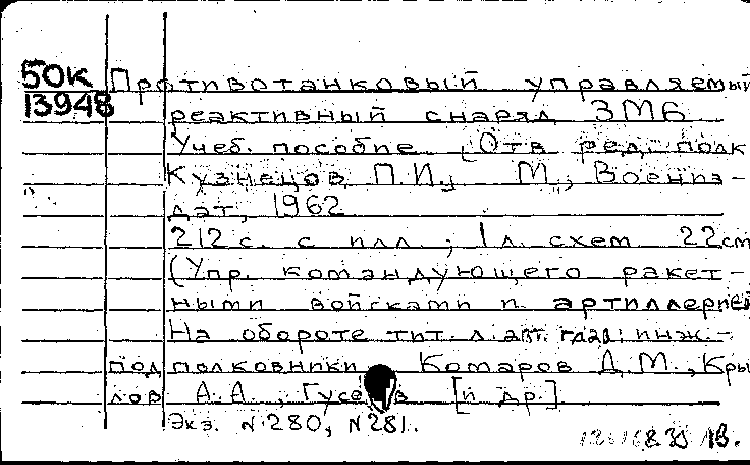 50К Противотанковый управляемый
13948 реактивный снаряд 3М6
Учеб. пособие [Отв. ред. полк
Кузнецов П.И., М., Воениз-
дат, 1962
212 с. с илл.; 1 л. схем 22см
(Упр. командующего ракет-
ными войсками и артиллерией
На обороте тит. л. авт. глав: инж.-
подполковники Комаров Д.М., Кры
лов А.А., Гусев [и др.].
Экз. №280, №281.